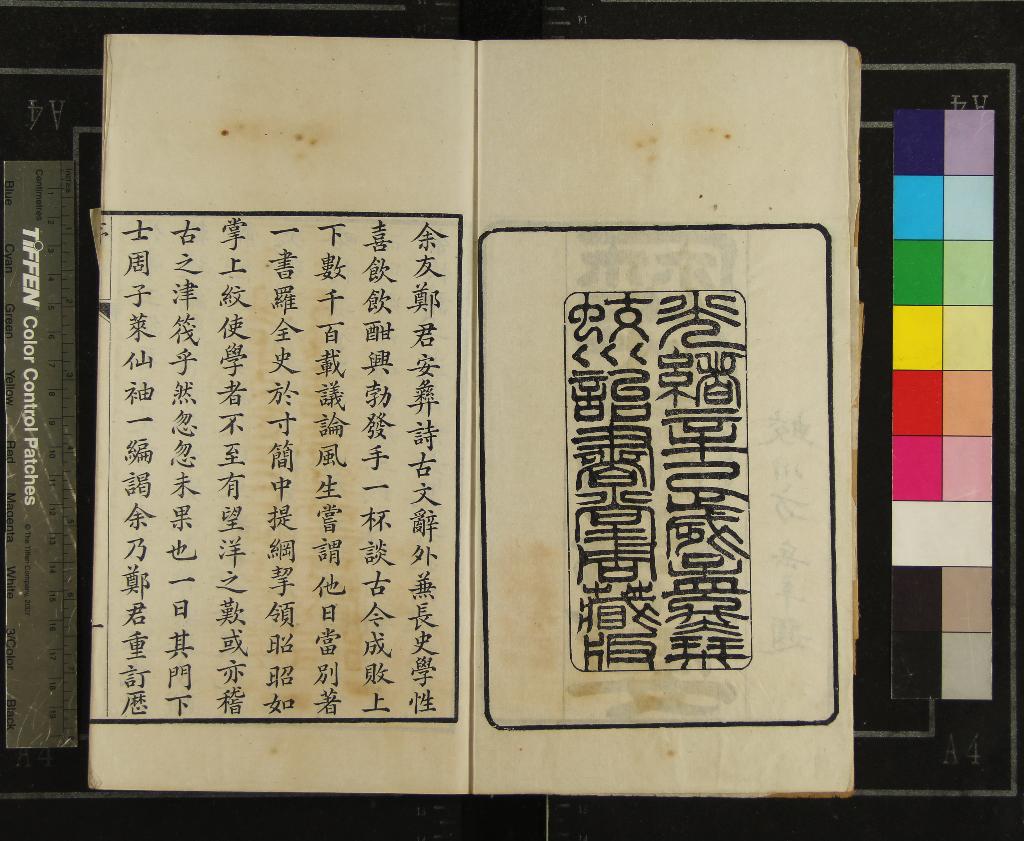 光緒辛巳歲
藏版
余友鄭君安彝詩古文辭外蒹長史學性
喜飲飲酣興勃發手一杯談古今成敗上
下數千百載議論風生嘗謂他日當別著
一書羅全史於寸簡中提綱挈領昭昭如
掌上紋使學者不至有望洋之歎或亦稽
古之津筏乎然忽忽未果也一日其門下
士周子萊仙袖一編謁余乃鄭君重訂歴
一
TIFFEN Color Control Patches
© The Tiffen Company, 2007
Centimetres
Inches
Blue Cyan Green Yellow Red Magenta White 3/Color Black
A4
A4
A4
A4